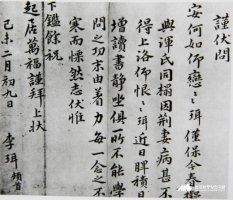 謹伏問
安何如仰戀〻珥僅保今奉
與渾氏同榻因荊妻病甚不
得上洛仰恨〻珥近日脾積日
增讀書靜坐俱所不能學
問之功末由着力每一念之不
寒而慄然志伏惟
下鑑餘祝
起居萬福謹拜上狀
己未二月初九日
李珥 頓首